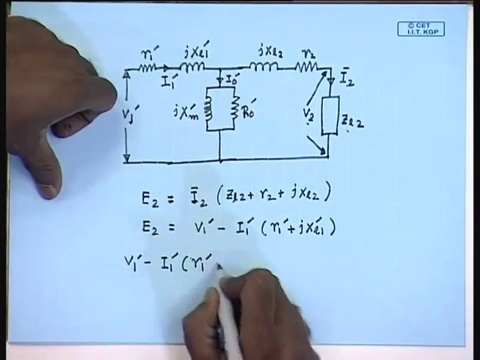 © CET
I.I.T. KGP
r₁′ jXl₁′ jXl₂ r₂
I₁′ I₀′ Ī₂
V₁′ jXm′ R₀′ V₂ Zl₂
E₂ = Ī₂ (Zl₂ + r₂ + jXl₂)
E₂ = V₁′ − I₁′ (r₁′ + jXl₁′)
V₁′ − I₁′ (r₁′